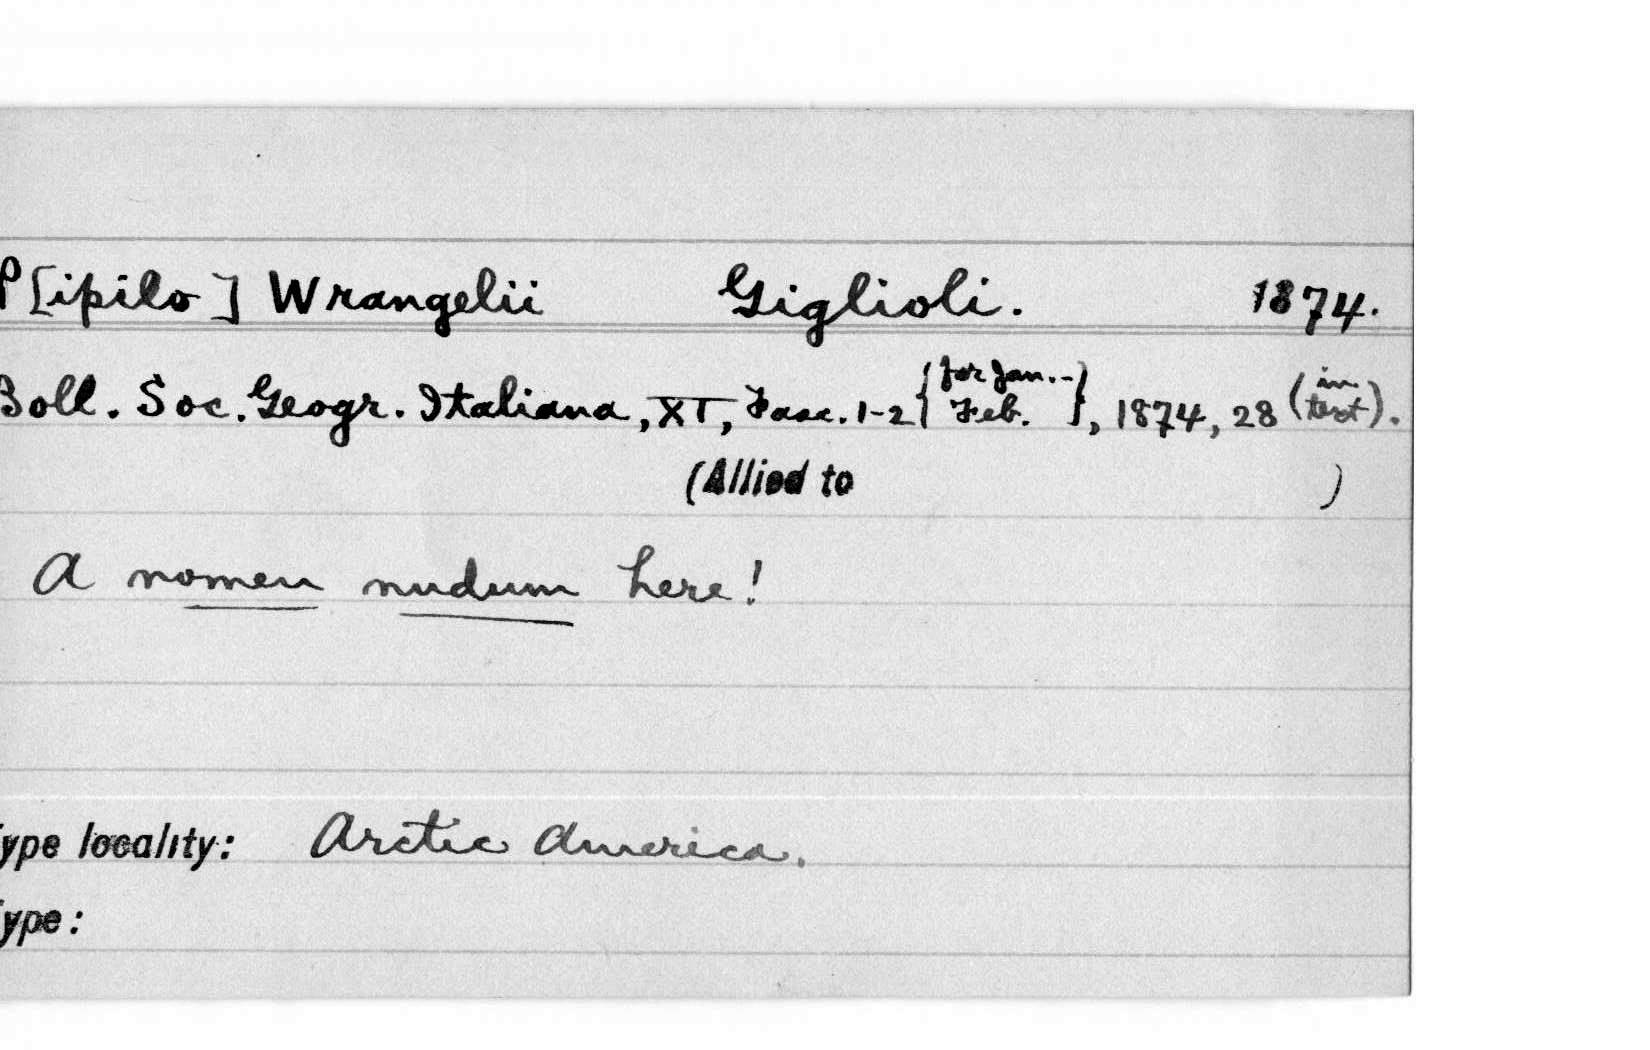 P[ipilo] Wrangelii Giglioli. 1874.
Boll. Soc. Geogr. Italiana, XI, Fasc. 1-2 {for Jan.-Feb.}, 1874, 28 (in text).
(Allied to )
A nomen nudum here!
ype locality: Arctic America.
ype: